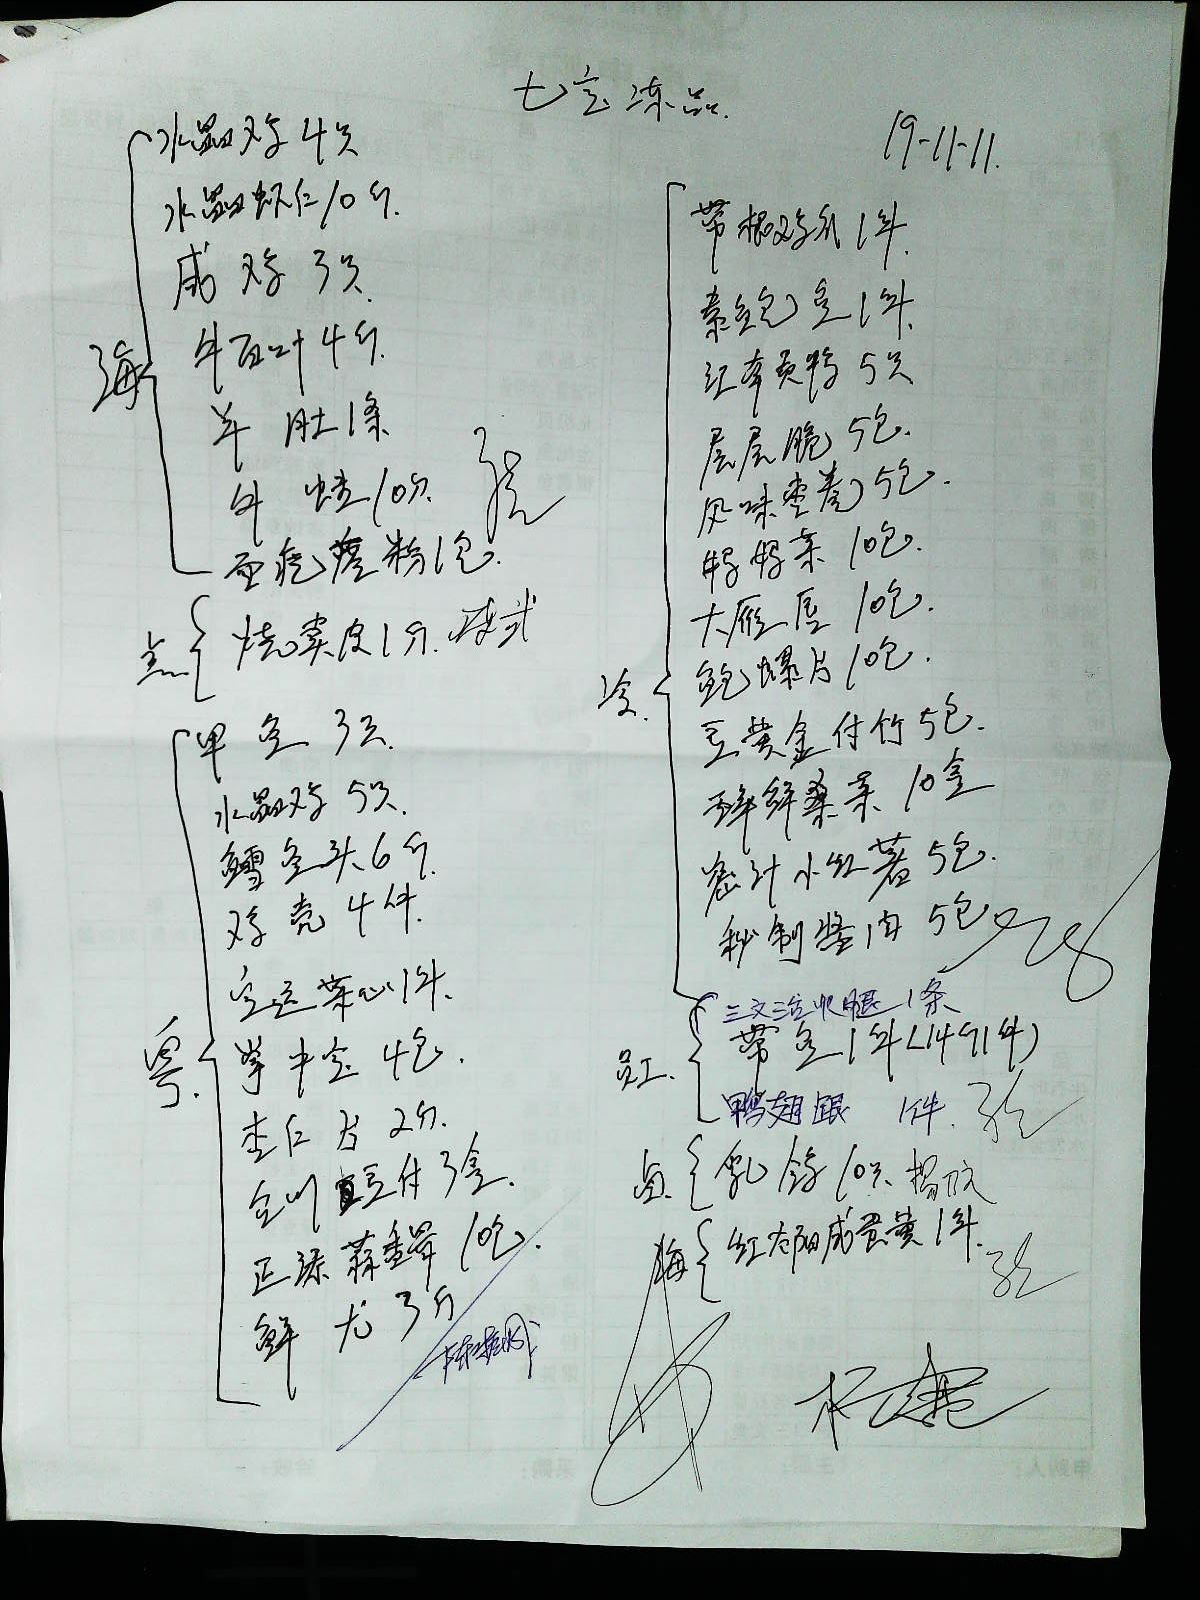 七宝冻品
19-11-11.
海
水晶鸡4只
水晶虾仁10斤.
咸鸡3只.
牛百叶4斤.
羊肚1条
牛蛙10斤.
亚疙瘩粉1包.
点
烧卖皮1斤.
粤.
甲鱼3只.
水晶鸡5只.
鳕鱼头6斤.
鸡壳4件.
空运菜心1件.
掌中宝4包.
杏仁片2斤.
3盒.
10包.
鲜尤3斤
冷.
带根鸡爪1件.
素鲍鱼1件.
江南贡鸭5只
层层脆5包.
风味枣卷5包.
妈妈菜10包.
大雁唇10包.
鲍螺片10包.
豆黄金付竹5包.
10盒
密汁小红薯5包.
秘制酱肉5包
员工.
三文治火腿1条
带鱼1件(14斤1件)
鸭翅跟1件.
卤.
乳鸽10只
海
红太阳咸蛋黄1件.